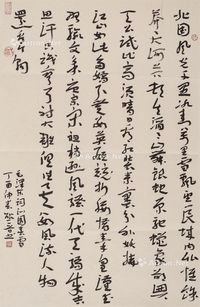 北国风光千里冰封万里雪飘望长城内外惟余
莽莽大河上下顿失滔滔山舞银蛇原驰蜡象欲与
天公试比高须晴日看红装素裹分外妖娆
江山如此多娇引无数英雄竞折腰惜秦皇汉武
略输文采唐宗宋祖稍逊风骚一代天骄成吉
思汗只识弯弓射大雕俱往矣数风流人物
还看今朝
毛泽东词沁园春雪
丁酉仲冬